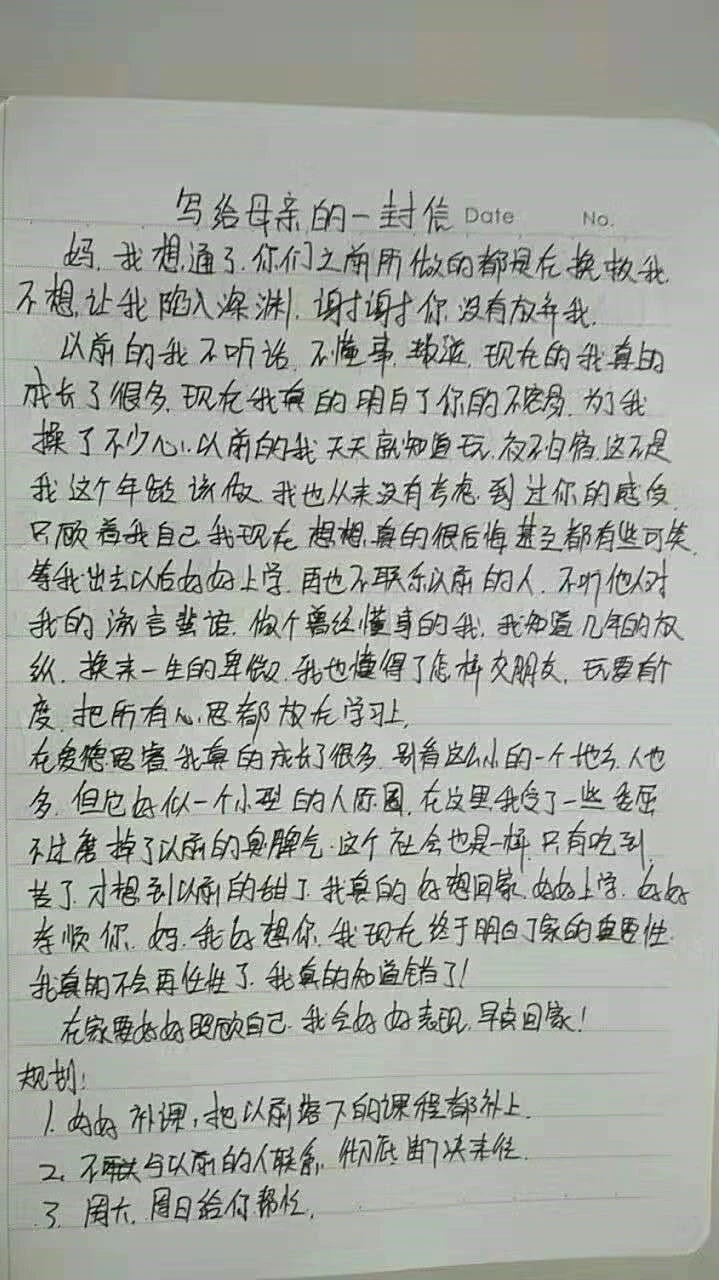 写给母亲的一封信 Date No.
妈,我想通了,你们之前所做的都是在挽救我,
不想让我陷入深渊,谢谢你没有放弃我,
以前的我不听话,不懂事,叛逆,现在的我真的
成长了很多,现在我真的明白了你的不容易,为了我
操了不少心,以前的我天天就知道玩,夜不归宿,这不是
我这个年龄该做,我也从来没有考虑到过你的感受,
只顾着我自己我现在想想,真的很后悔甚至都有些可笑,
等我出去以后好好上学,再也不联系以前的人,不听他人对
我的流言蜚语,做个曾经懂事的我,我知道几年的放
纵,换来一生的卑微,我也懂得了怎样交朋友,玩要有个
度,把所有心思都放在学习上,
在爱德思睿我真的成长了很多,别看这么小的一个地方,人也
多,但它好似一个小型的人际圈,在这里我受了一些委屈
不过磨掉了以前的臭脾气,这个社会也是一样,只有吃到
苦了,才想到以前的甜了,我真的好想回家,好好上学,好好
孝顺你,妈,我好想你,我现在终于明白了家的重要性,
我真的不会再任性了,我真的知道错了!
在家要好好照顾自己,我会好好表现,早点回家!
规划:
1. 好好补课,把以前落下的课程都补上,
2. 不与以前的人联系,彻底断决来往,
3. 周六,周日给你帮忙,